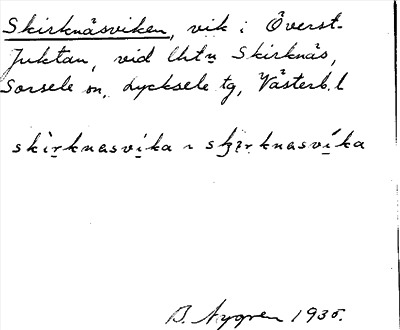 Skirknäsviken, vik i Överst-
Juktan, vid Uttn Skirknäs,
Sorsele sn, Lycksele tg, Västerb. l
skìṛknasvi̱ka ~ sʒìṛknasví̱ka
B. Nygren 1935.